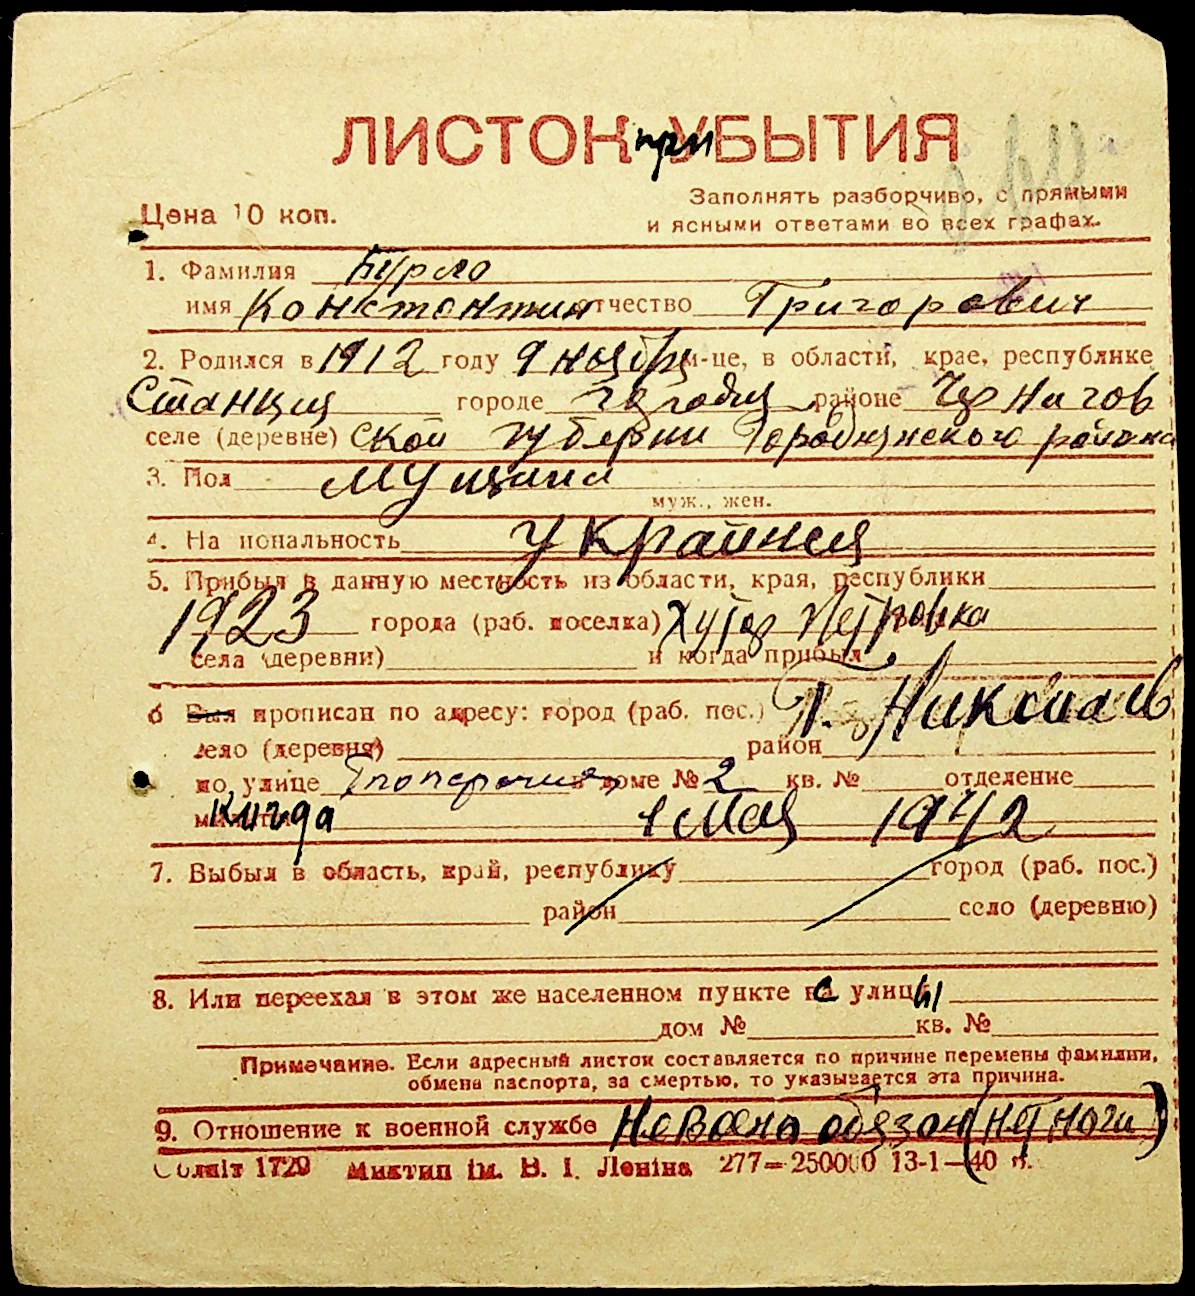 ЛИСТОК при УБЫТИЯ
Цена 10 коп.
Заполнять разборчиво, с прямыми
и ясными ответами во всех графах.
1. Фамилия Бурло
имя Констонтин отчество Григорович
2. Родился в 1912 году 9 ноября м-це, в области, крае, республике
Станция городе Городня районе Чернигов
селе (деревне) ской губерни Городнянского района
3. Пол Мущина
муж., жен.
4. Национальность Украинец
5. Прибыл в данную местность из области, края, республики
1923 города (раб. поселка) Хутор Петровка
села (деревни) и когда прибыл
6 Был прописан по адресу: город (раб. пос.) Г. Николаев
село (деревня) район
по улице Поперечная в доме № 2 кв. № отделение
милиции Когда 1 Мая 1942
7. Выбыл в область, край, республику город (раб. пос.)
район село (деревню)
8. Или переехал в этом же населенном пункте с улицы
дом № кв. №
Примечание. Если адресный листок составляется по причине перемены фамилии,
обмена паспорта, за смертью, то указывается эта причина.
9. Отношение к военной службе Невоено обязан (нет ноги)
Облліт 1729 Миктип ім. В. І. Леніна 277—250000 13-1—40 р.